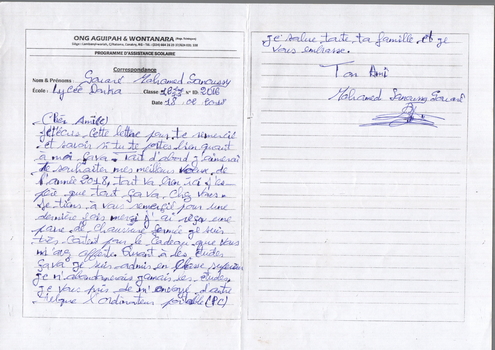 ONG AGUIPAH & WONTANARA
PROGRAMME D'ASSISTANCE SCOLAIRE
Correspondance
Nom & Prénoms : Souaré Mohamed Sanoussy
École : Lycée Donka Classe : N° ID: 206
Date : 18 02 2018
Cher Ami(e)
J'écris cette lettre pour te remercié
et savoir si tu te portes bien quant
à moi sava. Tout d'abord j'aimerai
te souhaiter mes meilleur voeux de
l'année 2018, tout va bien ici j'es-
père que tout sava chez vous.
Je tiens à vous remercié pour une
dernière fois merci j'ai reçu une
paire de chaussure fermée je suis
très content pour le cadeau que vous
m'avez offert. Quant à les études
sava je suis admis en classe supérieur
je n'abandonnerais jamais les études.
Je vous pris de m'envoyé d'autre
l'ordinateur portable (PC)
je salue toute ta famille et je
vous embrasse.
Ton Ami
Mohamed Sanoussy Souaré